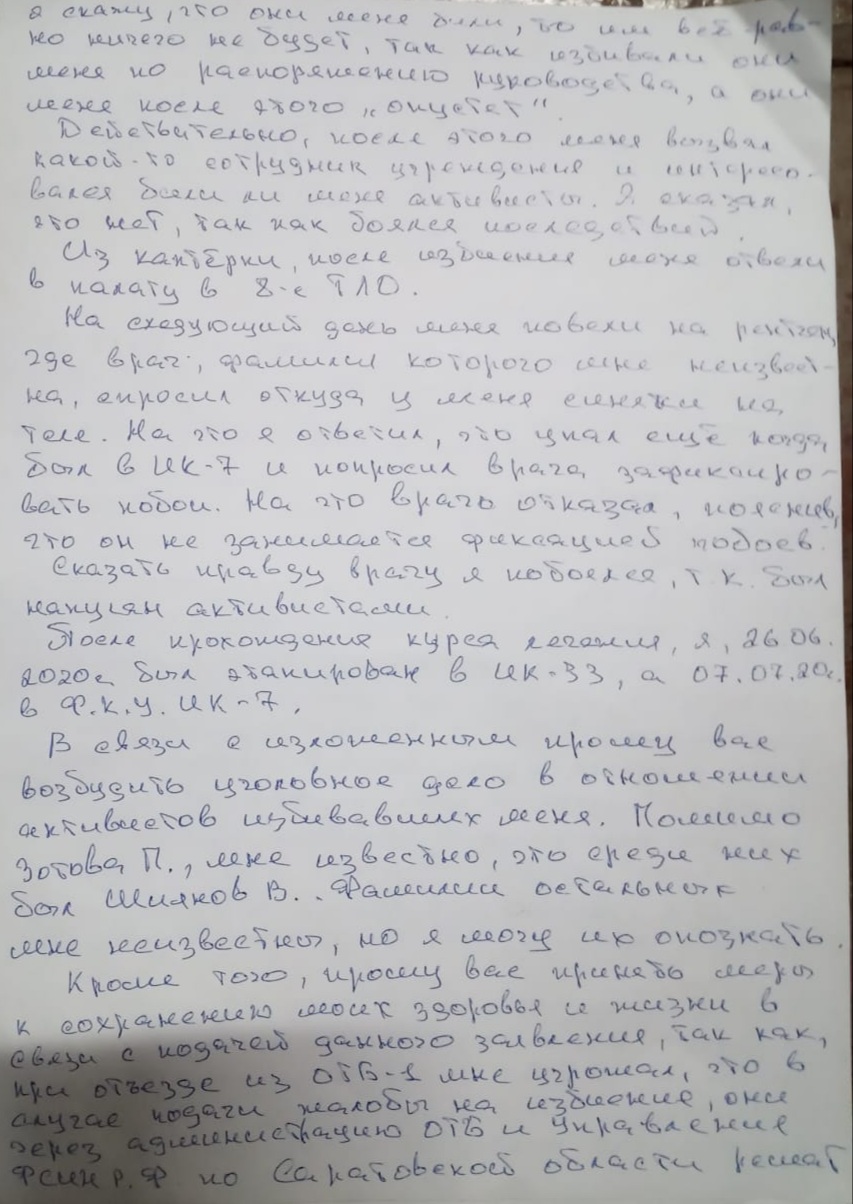 я скажу, что они меня били, то им всё рав-
но ничего не будет, так как избивали они
меня по распоряжению руководства, а они
меня после этого „опустят“.
Действительно, после этого меня вызвал
какой-то сотрудник учреждения и интересо-
вался били ли меня активисты. Я сказал,
что нет, так как боялся последствий.
Из каптёрки, после избиения меня отвели
в палату в 8-е ТЛО.
На следующий день меня повели на рентген,
где врач, фамилия которого мне неизвест-
на, спросил откуда у меня синяки на
теле. На это я ответил, что упал ещё когда
был в ИК-7 и попросил врача зафиксиро-
вать побои. На это врачь отказал, пояснив,
что он не занимается фиксацией побоев.
Сказать правду врачу я побоялся, т.к. был
напуган активистами.
После прохождения курса лечения, я, 26.06.
2020г. был этапирован в ИК-33, а 07.07.20г.
в Ф.К.У. ИК-7.
В связи с изложенным прошу вас
возбудить уголовное дело в отношении
активистов избивавших меня. Помимо
Зотова П., мне известно, что среди них
был Шияков В.. Фамилии остальных
мне неизвестны, но я могу их опознать.
Кроме того, прошу вас принять меры
к сохранению моих здоровья и жизни в
связи с подачей данного заявления, так как,
при отъезде из ОТБ-1 мне угрожали, что в
случае подачи жалобы на избиение, они
через администрацию ОТБ и Управление
ФСИН Р.Ф по Саратовской области решат